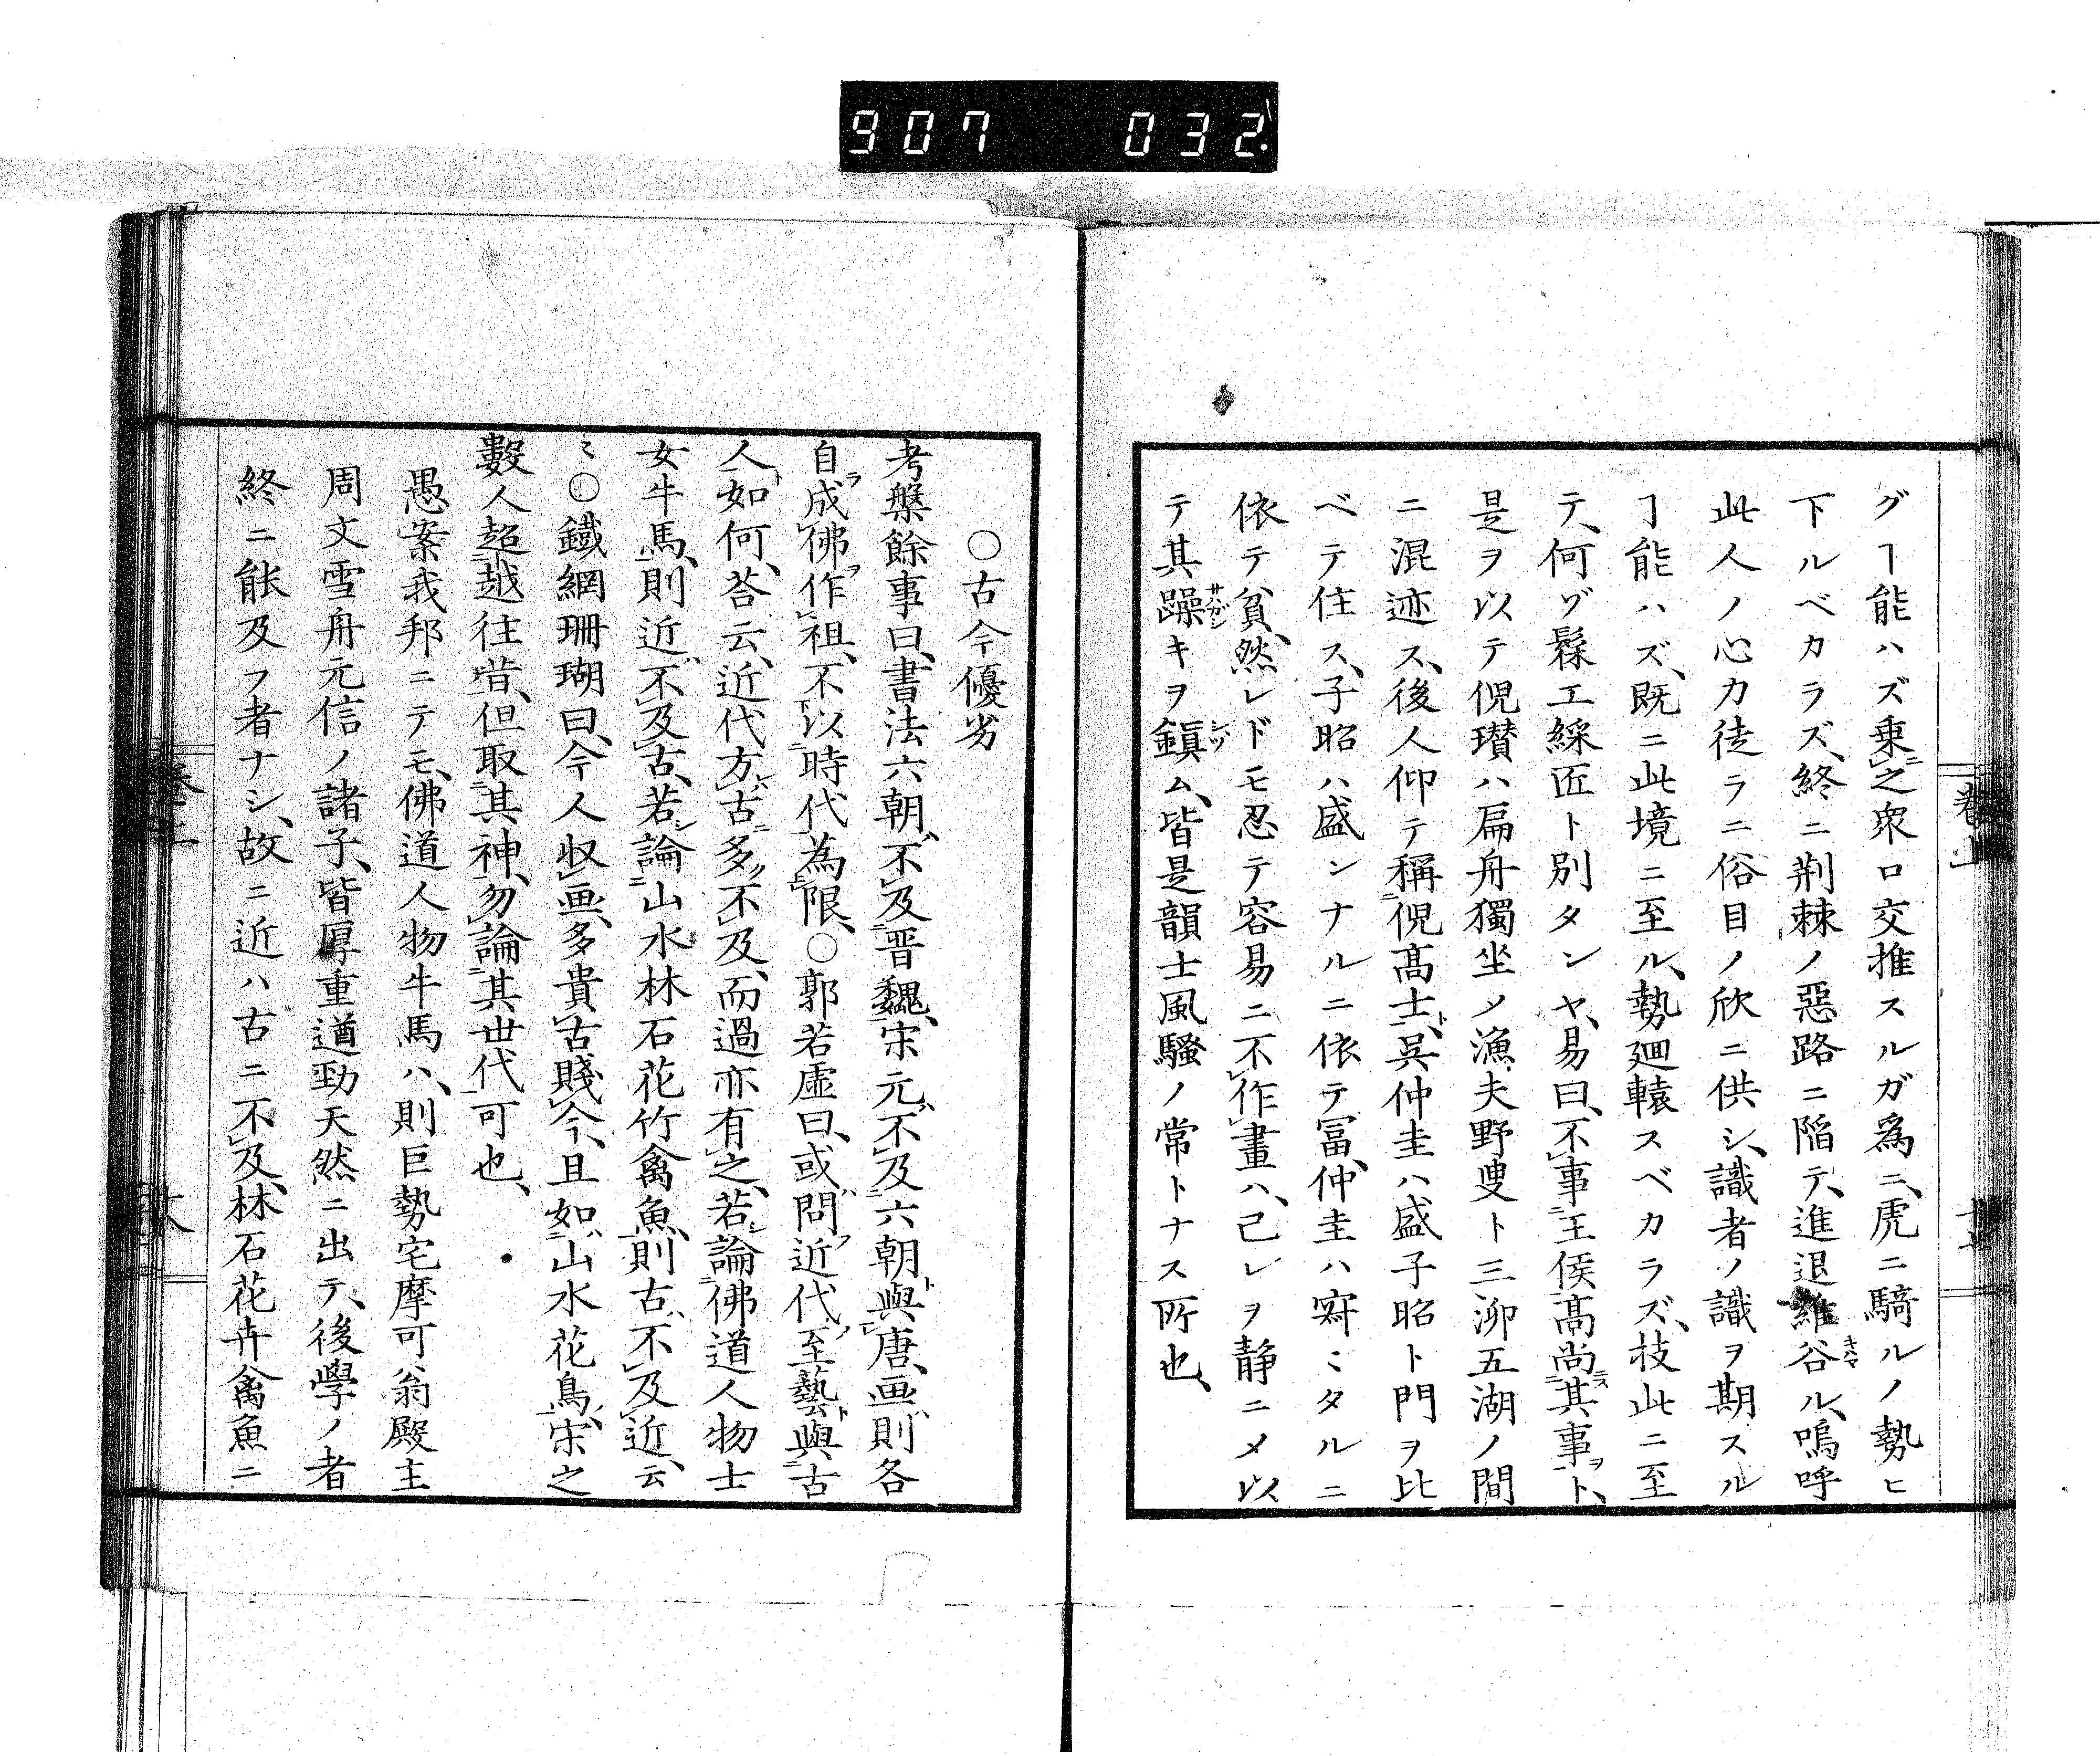 907 032
グヿ能ハズ乗之衆口交推スルガ為ニ、虎ニ騎ルノ勢ヒ
下ルベカラズ、終ニ荆棘ノ惡路ニ陷テ、進退維谷ル、嗚呼
此人ノ心力徒ラニ俗目ノ欣ニ供シ、識者ノ識ヲ期スル
ヿ能ハズ、既ニ此境ニ至ル、勢廻轅スベカラズ、技此ニ至
テ、何ゾ髹工綵匠ト別タンヤ、易曰、不事王侯高尚其事ト、
是ヲ以テ倪瓚ハ扁舟獨坐ノ漁夫野叟ト三泖五湖ノ間
ニ混迹ス、後人仰テ稱倪髙士、呉仲圭ハ盛子昭ト門ヲ比
ベテ住ス、子昭ハ盛ンナルニ依テ冨、仲圭ハ寂〻タルニ
依テ貧、然レドモ忍テ容易ニ不作畫ハ、己レヲ静ニメ以
テ其躁キヲ鎭ム、皆是韻士風騷ノ常トナス所也、
○古今優劣
考槃餘事曰、書法六朝不及晋魏、宋元不及六朝與唐、画則各
自成佛作祖、不以時代為限、○郭若虚曰、或問近代至藝與古
人如何、荅云、近代方古多不及、而過亦有之、若論佛道人物士
女牛馬、則近不及古、若論山水林石花竹禽魚、則古不及近、云
〻○鐵網珊瑚曰、今人収画、多貴古賤今、且如山水花鳥、宋之
數人超越往昔、但取其神、勿論其世代可也、
愚案我邦ニテモ、佛道人物牛馬ハ、則巨勢宅摩可翁殿主
周文雪舟元信ノ諸子、皆厚重遒勁天然ニ出テ、後學ノ者
終ニ能及フ者ナシ、故ニ近ハ古ニ不及、林石花卉禽魚ニ